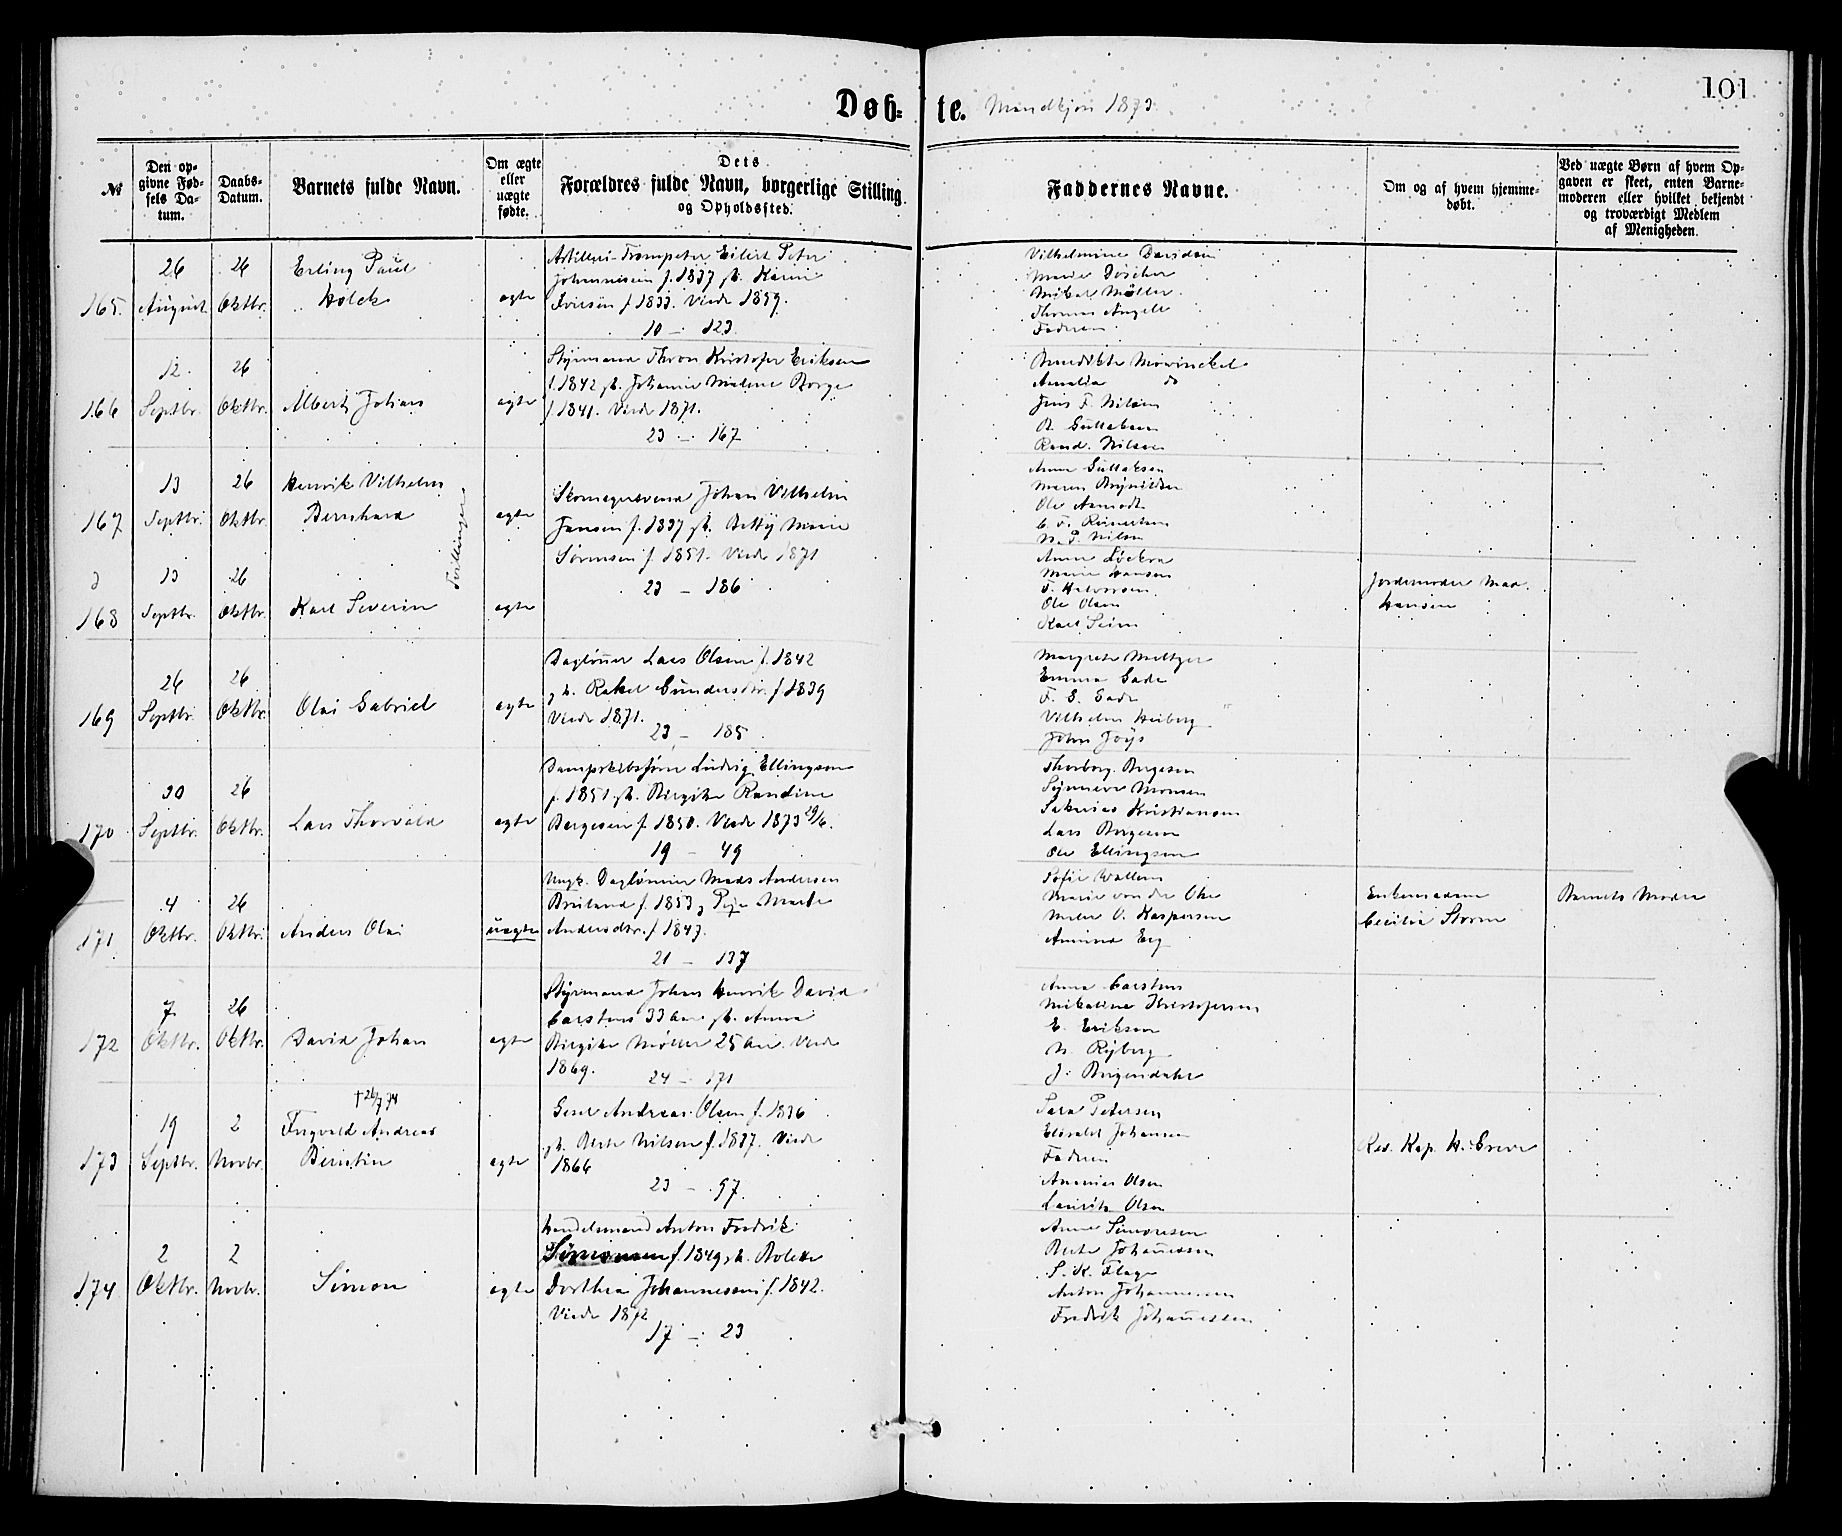 101
Døb- te. Mandkjøn 1873.
№
Den opgivne Fødsels Datum.
Daabs-Datum.
Barnets fulde Navn.
Om ægte eller uægte fødte.
Dets Forældres fulde Navn, borgerlige Stilling og Opholdssted.
Faddernes Navne.
Om og af hvem hjemmedøbt.
Ved uægte Børn af hvem Opgaven er skeet, enten Barnemoderen eller hvilket bekjendt og troværdigt Medlem af Menigheden.
165. 26 August 26 Oktbr. Erling Paul Holck ægte
Artilleri-Trompeter Eilert Peter
Johannesen f. 1837 gb. Karen
Iversen f 1833. Viede 1859.
10 — 123.
Vilhelmine Davidsen
Mikal Møller
Thomas Angell
Faderen
166 12 Septbr. 26 Oktbr. Albert Johan ægte
Styrmand Thron Kristofer Eriksen
f. 1842 gb. Johanne Malene Borge
f. 1841. Viede 1871.
23 — 167
Benedikte Mowinckel
Amalia do
Jens F. Nilsen
B. Gullaksen
Rand. Nilsen
167 13 Septbr. 26 Oktbr. Henrik Vilhelm Bernhard ægte
Tvillinger
Skomagersvend Johan Vilhelm
Jansen f. 1837 gb. Betty Marie
Sørensen f. 1851. Viede 1871
23 — 186
Anne Gullaksen
Maren Brynildsen
Ole Aamodt
N. P. Nilsen
168 13 Septbr. 26 Oktbr. Karl Severin ægte
Marie Hansen
T. Halvorsen
Ole Olsen
Karl Seim
Jordemoder Mad.
Hansen
169 26 Septbr. 26 Oktbr. Olai Gabriel ægte
Dagløner Lars Olsen f. 1842
gb. Rakel Gundersdtr. f. 1839
Viede 1871.
23 — 185
Margrete Meltzer
Emma Gade
F. G. Gade
Vilhelm Heiberg
John Joys
170 30 Septbr. 26 Oktbr. Lars Thorvald ægte
Dampskibsfører Ludvig Ellingsen
f. 1851 gb. Birgitte Randine
Børgesen f. 1850. Viede 1873 29/6.
19 — 49
Thorborg Børgesen
Synneve Monsen
Sakarias Kristiansen
Lars Børgesen
Ole Ellingsen
171 4 Oktbr. 26 Oktbr. Anders Olai uægte
Ungk. Dagløner Mads Andersen
Breiland f. 1853 g Pige Marte
Andersdtr. f 1847.
21 — 137
Sofie Wallem
Marie von der Ohe
Meler O. Kaspersen
Amund Eeg
Enkemadam
Cecilia Storm
Barnets Moder
172 7 Oktbr. 26 Oktbr. David Johan ægte
Styrmand Johan Henrik David
Carstens 33 Aar gb. Anna
Birgitte Møller 25 Aar. Viede
1869.
24 — 171
Anna Carstens
Mikaline Kristofersen
E. Eriksen
N. Ryberg
J. Bergendahl
173 19 Septbr. 2 Novbr. † 26/7 74 Ingvald Andreas Berntin ægte
Andreas Olsen f. 1836
gb. Berte Nilsen f. 1837. Viede
1866
23 — 97.
Sara Petersen
Elisabet Johansen
Faderen
Ananias Olsen
Lauritz Olsen
Res. Kap. H. Greve
174 2 Oktbr. 2 Novbr. Simon ægte
Handelsmand Anton Fredrik
Simonsen f. 1849 gb. Bolette
Dorthea Johannesen f. 1842.
Viede 1872
17 — 23
Anne Simonsen
Berte Johannessen
S. K. Flage
Anton Johannessen
Fredrik Johannessen